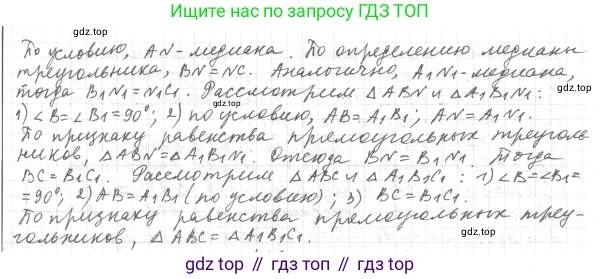 Ищите нас по запросу ГДЗ ТОП
По условию, AN-медиана. По определению медианы
треугольника, BN=NC. Аналогично, A1N1-медиана,
тогда B1N1=N1C1. Рассмотрим △ABN и △A1B1N1:
1) ∠B=∠B1=90°; 2) по условию, AB=A1B1; AN=A1N1.
По признаку равенства прямоугольных треуголь
ников, △ABN=△A1B1N1. Отсюда BN=B1N1. Тогда
BC=B1C1. Рассмотрим △ABC и △A1B1C1: 1) ∠B=∠B1=
=90°; 2) AB=A1B1 (по условию); 3) BC=B1C1.
По признаку равенства прямоугольных треу-
гольников, △ABC=△A1B1C1.
gdz.top
gdz.top
gdz.top
gdz.top
gdz.top
gdz.top
gdz.top // gdz.top // gdz.top